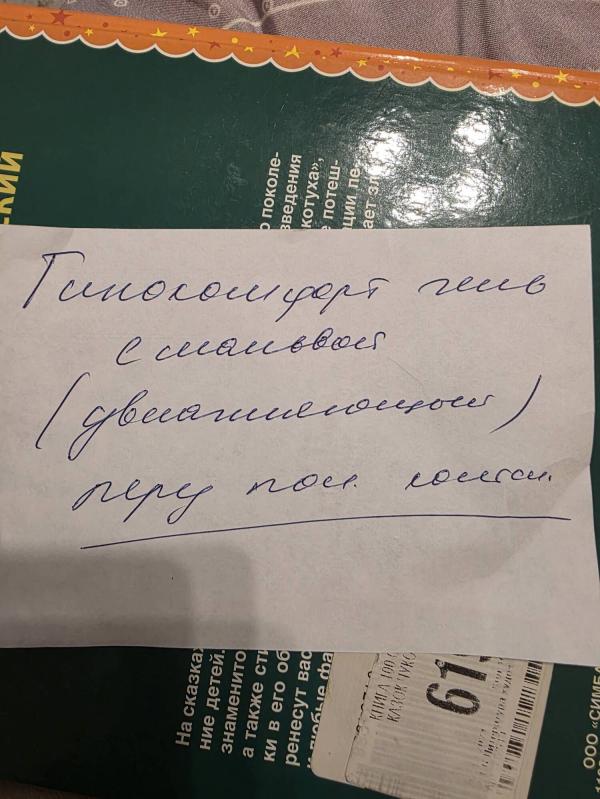 Гинокомфорт гель
с мальвой
(увлажняющий)
перед пол. контак.
КИЙ
поколе-
зведения
котуха»,
потеш-
ции пе-
ает зл
На сказках
ние детей.
знаменито
а также сти
ки в его об
ренесут вас
КНИГА 100 С
КАЗОК ЧУКО
61
ООО «СИМБ